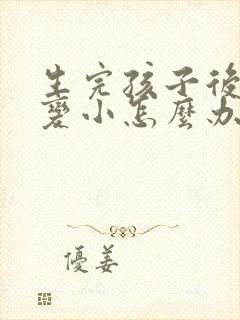 生完孩子後
變小怎麼办
優姜